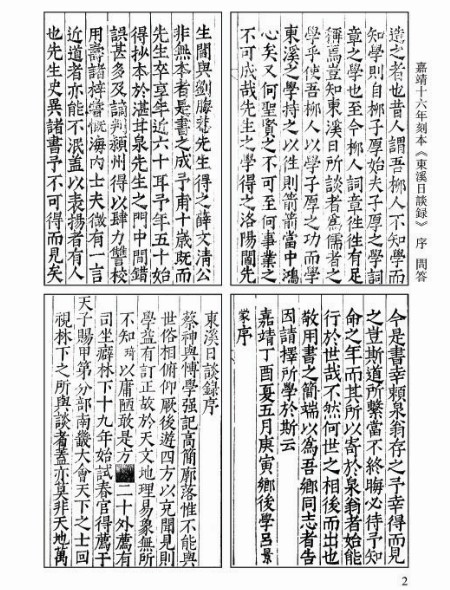 嘉靖十六年刻本《東溪日談録》 序 問答
造之者也昔人謂吾柳人不知學而
知學則自柳子厚始夫子厚之學詞
章之學也至今柳人詞章往往有足
稱焉豈知東溪日所談者爲儒者之
學乎使吾柳人以學子厚之功而學
東溪之學持之以往則箭箭當中鴻
心矣又何聖賢之不可至何事業之
不可成哉先生之學得之洛陽閻先
生閻與劉先生得之薛文清公
非無本者是書之成予甫十歲既而
先生卒享年近六十耳予年五十始
得抄本於湛甘泉先生之門中間錯
誤甚多及謫判潁州得以肆力讐校
用壽諸梓嘗慨海内士夫微有一言
近道者亦能不泯蓋以表揚者有人
也先生史異諸書予不可得而見矣
今是書幸頼泉翁存之予幸得而見
之豈斯道所繫當不終晦必待予知
命之年而其所以寄於泉翁者始能
行於世哉不然何世之相後而出也
敬用書之簡端以爲吾鄉同志者告
因請擇所學於斯云
嘉靖丁酉夏五月庚寅鄉後學呂景
蒙序
東溪日談録序
蔡神與博學强記高簡廓落性不能與
世俗相俯仰厥後遊四方以充聞見則
學益有訂正故於天文地理易象無所
不知時以庸陋敢是方二十外薦有
司坐癖林下十九年始試春官得薦于
天子賜甲第分部南叢大會天下之士回
視林下之所與談者蓋亦莫非天地萬
2